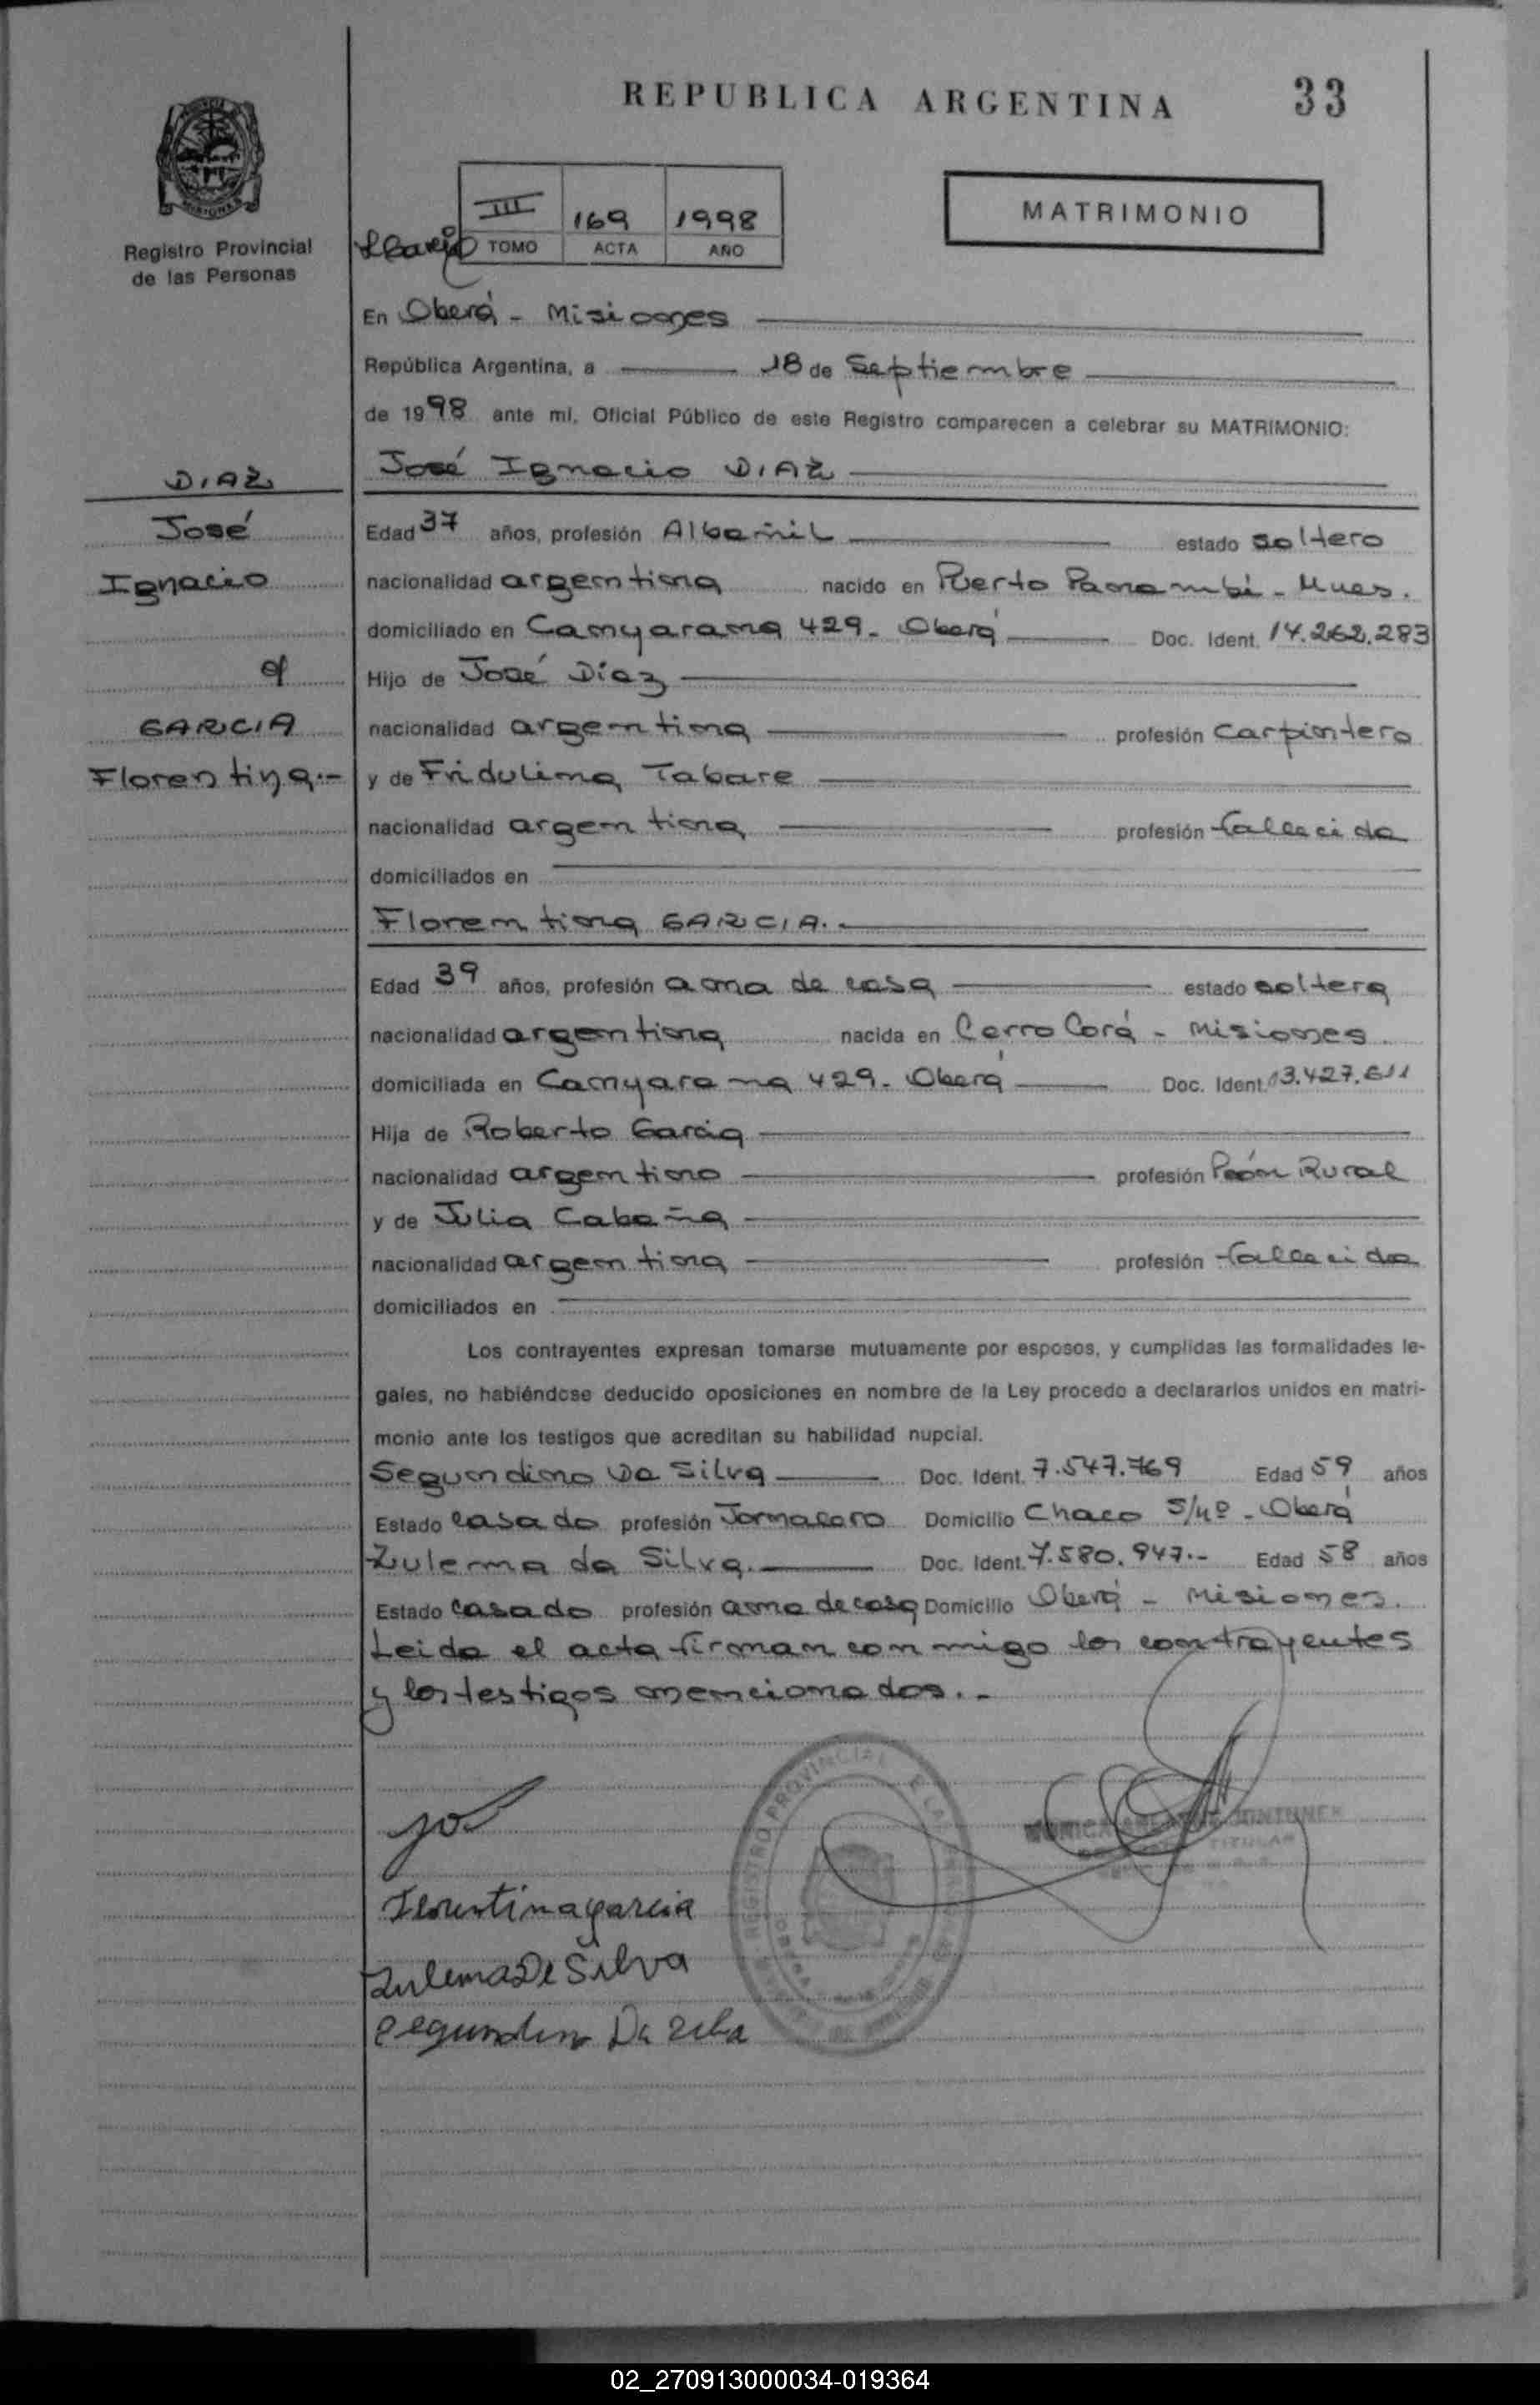 REPUBLICA ARGENTINA
33
MISIONES
Registro Provincial
de las Personas
III 169 1998
TOMO ACTA AÑO
MATRIMONIO
En Oberá - Misiones
República Argentina, a 18 de Septiembre
de 1998 ante mí, Oficial Público de este Registro comparecen a celebrar su MATRIMONIO:
DIAZ
José
Ignacio
y
GARCIA
Florentina.-
José Ignacio DIAZ
Edad 37 años, profesión Albañil estado soltero
nacionalidad argentina nacido en Puerto Panambí - Mnes.
domiciliado en Canyarana 429 - Oberá Doc. Ident. 14.262.283
Hijo de José Díaz
nacionalidad argentina profesión Carpintero
y de Fridulina Tabare
nacionalidad argentina profesión fallecida
domiciliados en
Florentina GARCIA.-
Edad 39 años, profesión ama de casa estado soltera
nacionalidad argentina nacida en Cerro Corá - Misiones
domiciliada en Canyarana 429 - Oberá Doc. Ident. 13.427.611
Hija de Roberto Garcia
nacionalidad argentino profesión Peón Rural
y de Julia Cabaña
nacionalidad argentina profesión fallecida
domiciliados en
Los contrayentes expresan tomarse mutuamente por esposos, y cumplidas las formalidades le-
gales, no habiéndose deducido oposiciones en nombre de la Ley procedo a declararlos unidos en matri-
monio ante los testigos que acreditan su habilidad nupcial.
Segundino Da Silva Doc. Ident. 7.547.769 Edad 59 años
Estado casado profesión Jornalero Domicilio Chaco S/nº - Oberá
Zulema da Silva. Doc. Ident. 7.580.947.- Edad 58 años
Estado casado profesión ama de casa Domicilio Oberá - Misiones.
Leida el acta firman conmigo los contrayentes
y los testigos mencionados.-
REGISTRO PROVINCIAL
TITULAR
Florentina garcia
Zulema De Silva
Segundino Da Silva
02_270913000034-019364